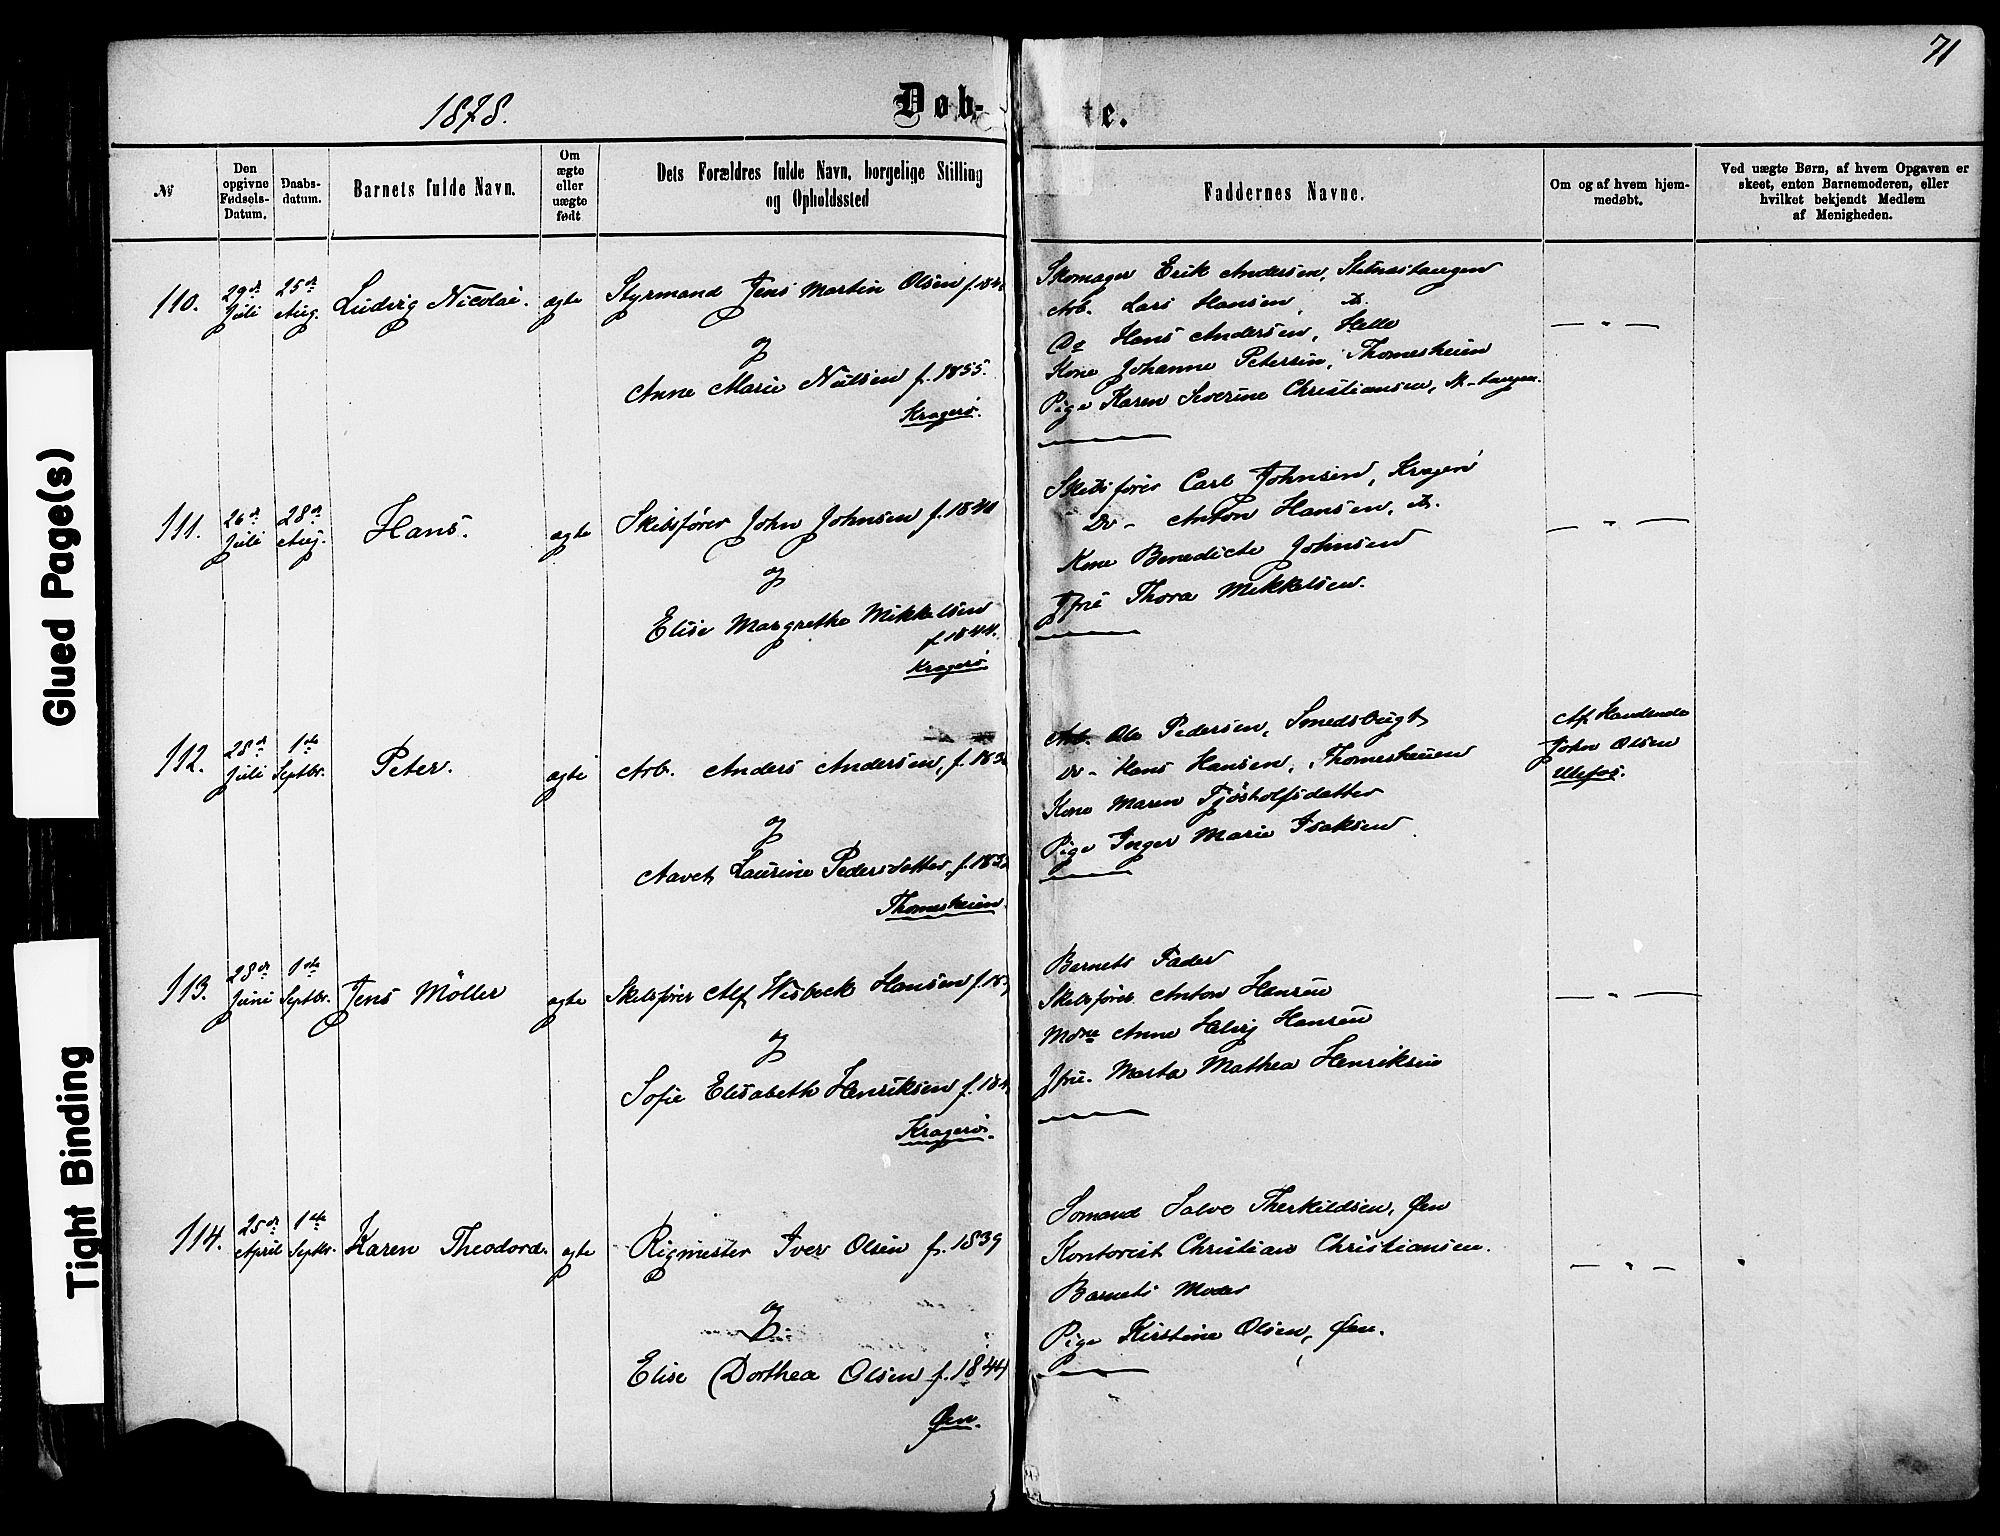 71
1878.
Døb-
te.
№
Den opgivne Fødsels-Datum.
Daabs-datum.
Barnets fulde Navn.
Om ægte eller uægte født
Dets Forældres fulde Navn, borgelige Stilling og Opholdssted
Faddernes Navne.
Om og af hvem hjem-medøbt.
Ved uægte Børn, af hvem Opgaven er skeet, enten Barnemoderen, eller hvilket bekjendt Medlem af Menigheden.
110.
29de Juli
25de Aug.
Ludvig Nicolai.
ægte
Styrmand Jens Martin Olsen f. 184
og
Anne Marie Nielsen f. 1855.
Kragerø.
Skomager Erik Andersen, Stilnestangen
Arb. Lars Hansen, Ds.
Do Hans Andersen, Helle
Kone Johanne Petersen, Thomesheien
Pige Karen Severine Christiansen, St-tangen.
— " —
111.
26de Juli
28de Aug.
Hans.
ægte
Skibsfører John Johnsen f. 1840
og
Elise Margrethe Mikkelsen
f. 1844.
Kragerø
Skibsfører Carl Johnsen, Kragerø
Do - Anton Hansen, Ds.
Kone Benedicte Johnsen
Jfru Thora Mikkelsen.
— " —
112.
28de Juli
1ste Septbr.
Peter.
ægte
Arb. Anders Andersen, f. 183
og
Aavet Laurine Pedersdatter, f. 183
Thomesheien.
Arb. Ole Pedersen, Smedsbugt
Do - Hans Hansen, Thomesheien
Kone Maren Tjøsholfsdatter
Pige Inger Marie Isaksen.
Af Handende
John Olsen
Ulefos.
113.
28de Juni
1ste Septbr.
Jens Möller
ægte
Skibsfører Alf Wisbeck Hansen f. 18
og
Sofie Elisabeth Henriksen f. 184
Kragerø.
Barnets Fader
Skibsfører Anton Hansen
Mdme Anne Helvig Hansen
Jfru. Marta Mathea Henriksen
— " —
114.
25de April
1ste Septbr.
Karen Theodora.
ægte
Rigmester Iver Olsen f. 1839
og
Elise Dorthea Olsen f. 1844
Øen.
Sømand Salve Therkildsen, Øen
Kontorist Christian Christiansen.
Barnets Moder
Pige Kirstine Olsen, Øen.
— " —
Glued Page(s)
Tight Binding